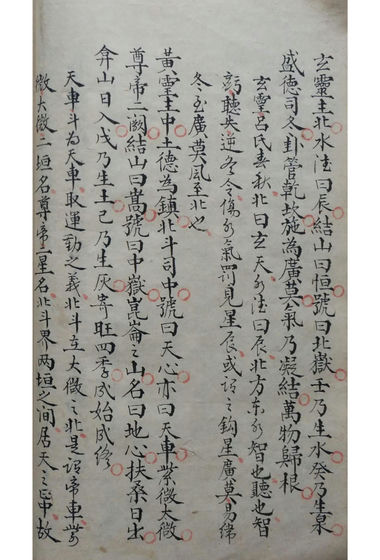 玄靈主北水德曰辰結山曰恒號曰北嶽壬乃生水癸乃生泉
盛德司冬卦管乾坎施為廣莫氣乃凝結萬物歸根
玄靈呂氏春秋北曰玄天水德曰辰北方水智也聽也智
虧聽失逆冬令傷水氣罰見星辰或謂之鈎星廣莫易緯
冬至廣莫風至北也
黃靈主中土德為鎮北斗司中號曰天心亦曰天車紫微大微
尊帝二闕結山曰嵩號曰中嶽崑崙之山名曰地心扶桑日出
弇山日入戊乃生土己乃生灰寄旺四季成始成終
天車斗為天車取運動之義北斗在大微之北是謂帝車紫
微大微二垣名尊帝二星名北斗界兩垣之間居天之正中故